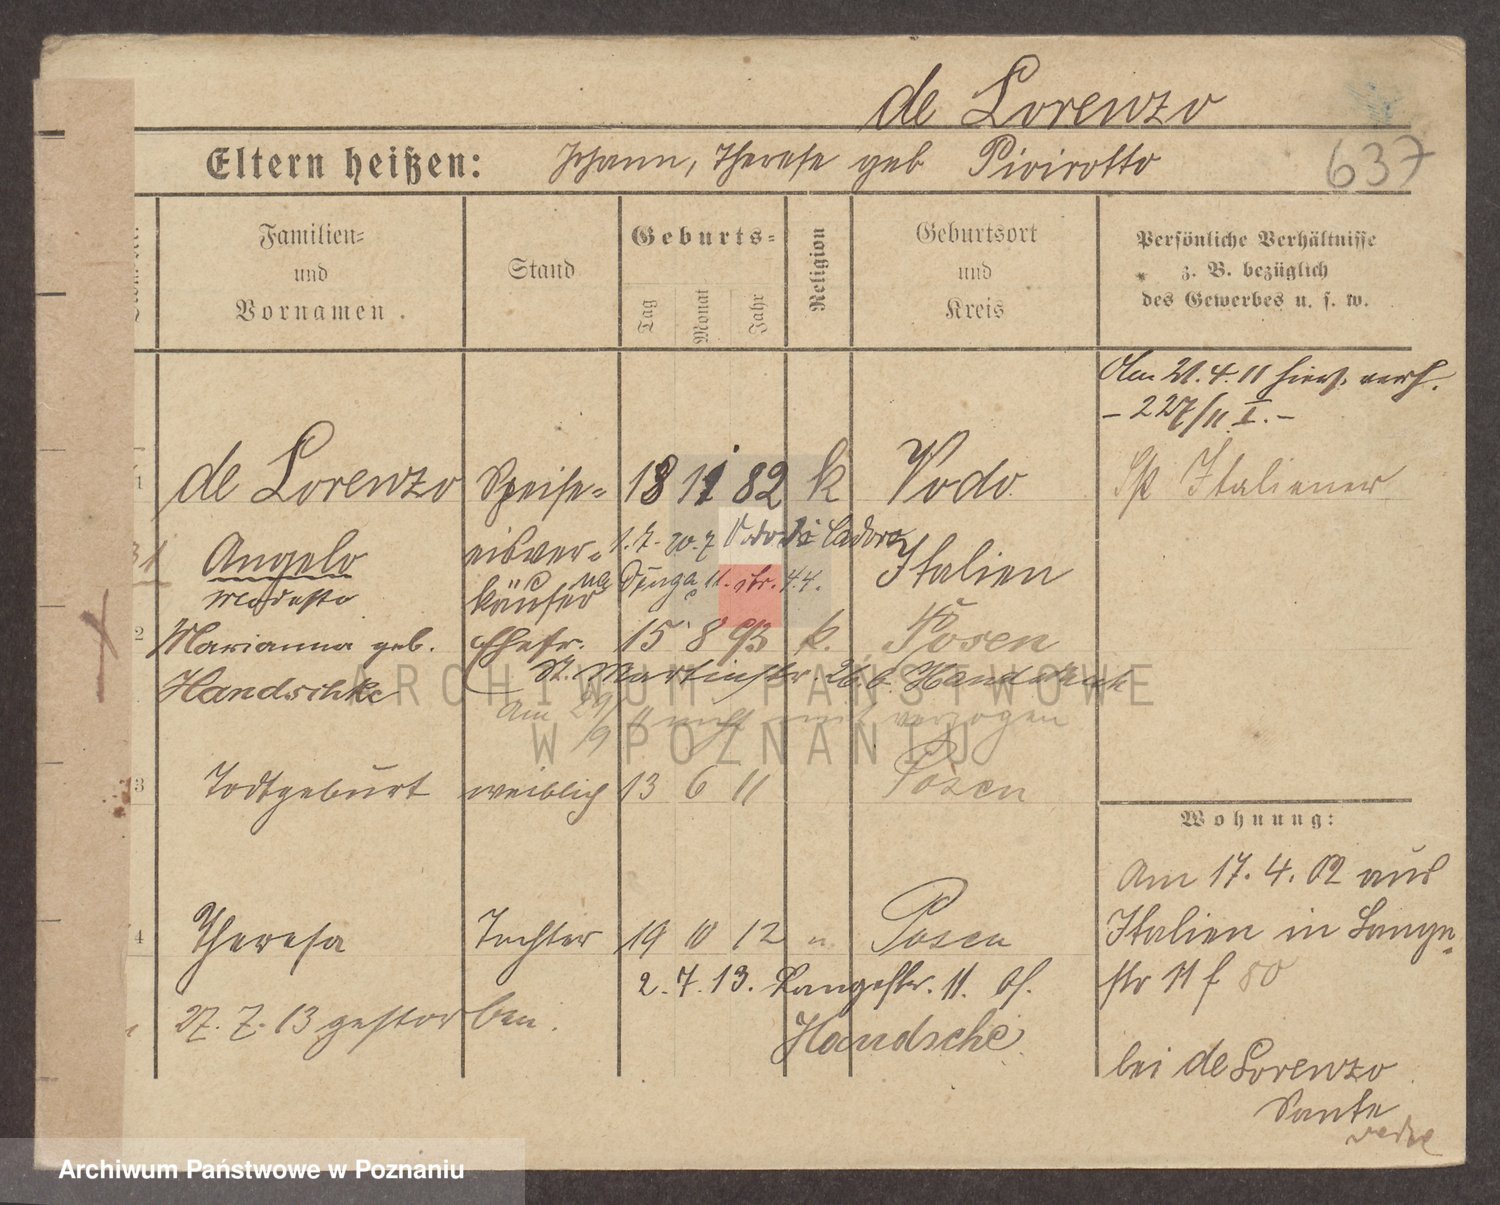 de Lorenzo
Eltern heißen: Johann, Therese geb Pivirotto
637
Familien= und Vornamen.
Stand
Geburts=
Tag
Monat
Jahr
Religion
Geburtsort und Kreis
Persönliche Verhältnisse
z. B. bezüglich
des Gewerbes u. s. w.
Am 21.4.11 hier verh.
- 227/11 I. -
1 de Lorenzo Speise= 18 11 82 k Vodo
Italiener
Angelo eisver= 1.7. 20.7 Vodo di Cadore Italien
Modesto käufer 11. 4.4.
2 Marianna geb. Ehefr. 15 8 93 k. Posen
Handschke St. Martinstr. 26 b. Handschke
Am 29/9 11 nicht mit verzogen
ARCHIWUM PAŃSTWOWE
W POZNANIU
3 Todtgeburt weiblich 13 6 11 Posen
Wohnung:
Am 17.4.02 aus
Italien in Lange=
str 11 f 80
4 Theresa Tochter 19 10 12 Posen
2.7.13. Langestr. 11. bs.
Handsche
27.7.13 gestorben.
bei de Lorenzo
Sante
Archiwum Państwowe w Poznaniu